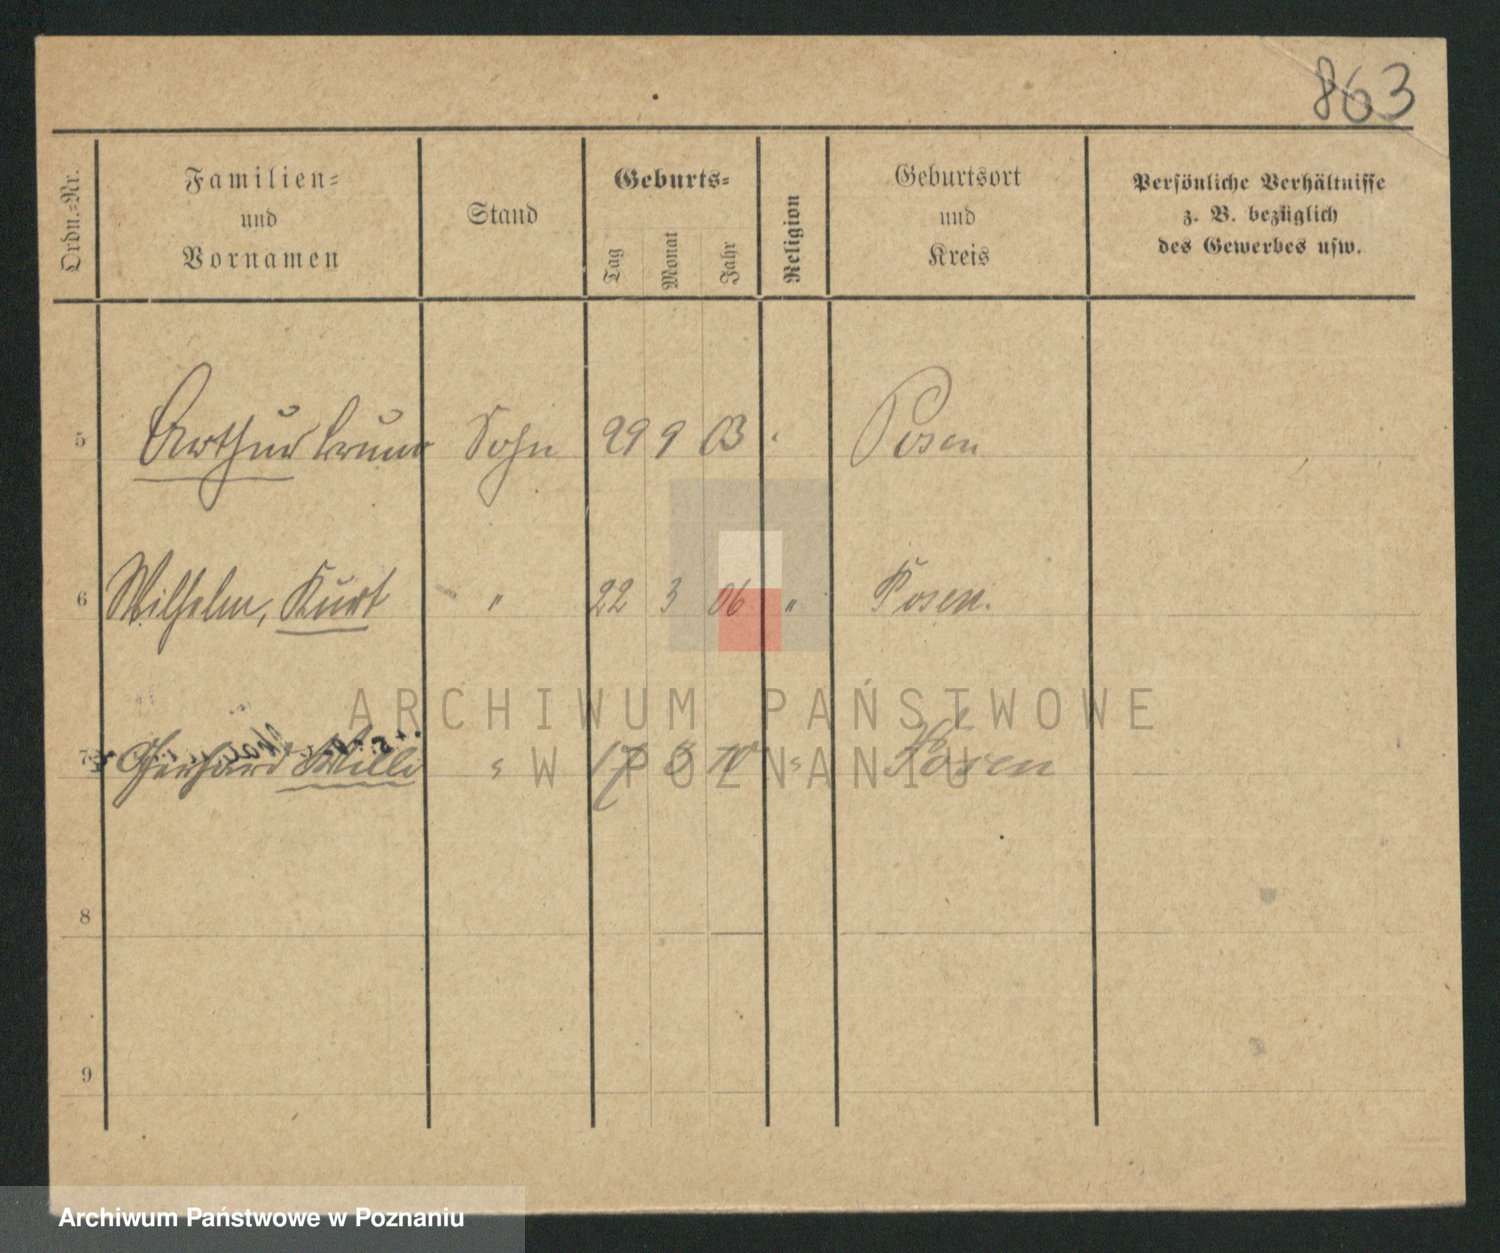 863
Ordn.=Nr.
Familien=
und
Vornamen
Stand
Geburts=
Tag
Monat
Jahr
Religion
Geburtsort
und
Kreis
Persönliche Verhältnisse
z. B. bezüglich
des Gewerbes usw.
5 Arthur Bruno Sohn 29 9 03 Posen
6 Wilhelm, Kurt " 22 3 06 " Posen.
7 Gerhard Willi 17 Posen
8
9
ARCHIWUM PAŃSTWOWE
W POZNANIU
Archiwum Państwowe w Poznaniu